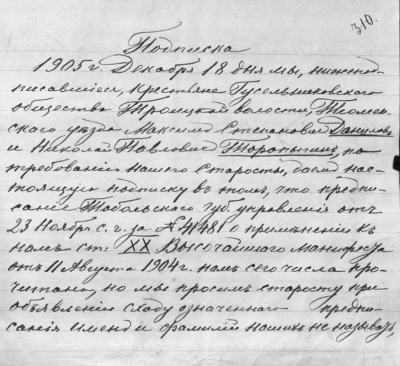 310.
Подписка
1905 г. Декабря 18 дня мы, нижепод-
писавшiеся, крестьяне Гусельниковскаго
общества Троицкой волости, Тюмен-
скаго уѣзда Максимъ Степановичъ Даниловъ
и Николай Павловичъ Торопыгинъ, по
требованiю нашего старосты, даемъ нас-
тоящую подписку въ томъ, что предпи-
санiе Тобольскаго Губ. управленiя отъ
23 Ноября с. г. за № 4481 о примѣненiи къ
намъ ст. XX Высочайшаго Манифеста
отъ 11 Августа 1904 г. намъ сего числа про-
читано, но мы просимъ старосту при
объявленiи сходу означеннаго предпи-
санiя имена и фамилiи нашихъ не называть,